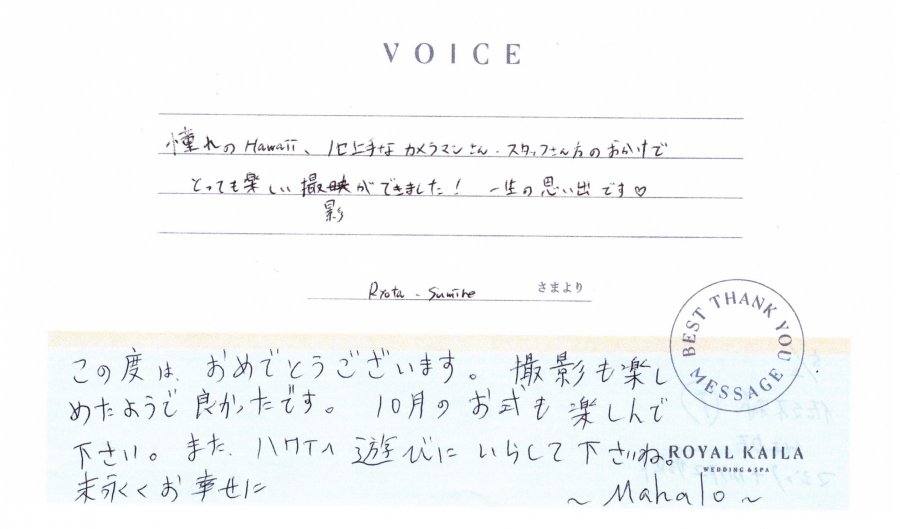 VOICE
憧れのHawaii、化上手なカメラマンさん、スタッフさん方のおかげで
とっても楽しい撮映ができました！ 一生の思い出です♡
影
Ryota . Sumire さまより
BEST THANK YOU MESSAGE
この度は、おめでとうございます。撮影も楽し
めたようで良かったです。10月のお式も楽しんで
下さい。また、ハワイへ遊びにいらして下さいね。
ROYAL KAILA
WEDDING & SPA
末永くお幸せに
～Mahalo～